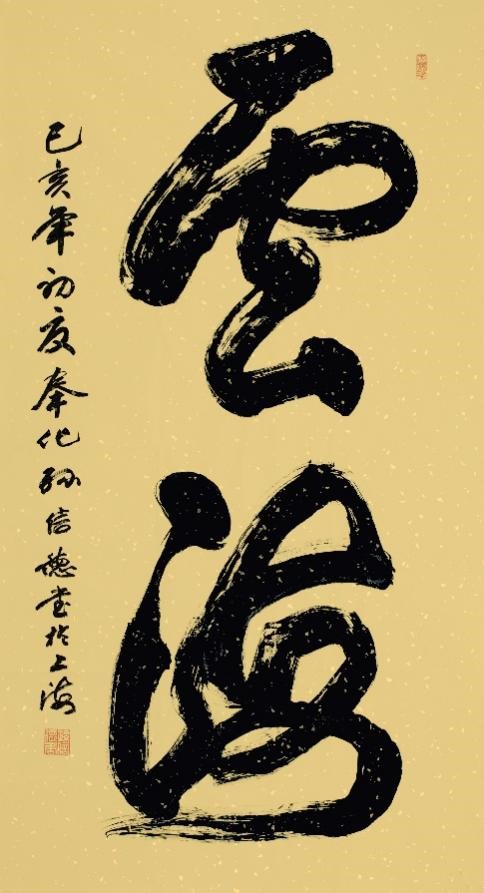 雲海
己亥年初夏奉化孙信德书于上海